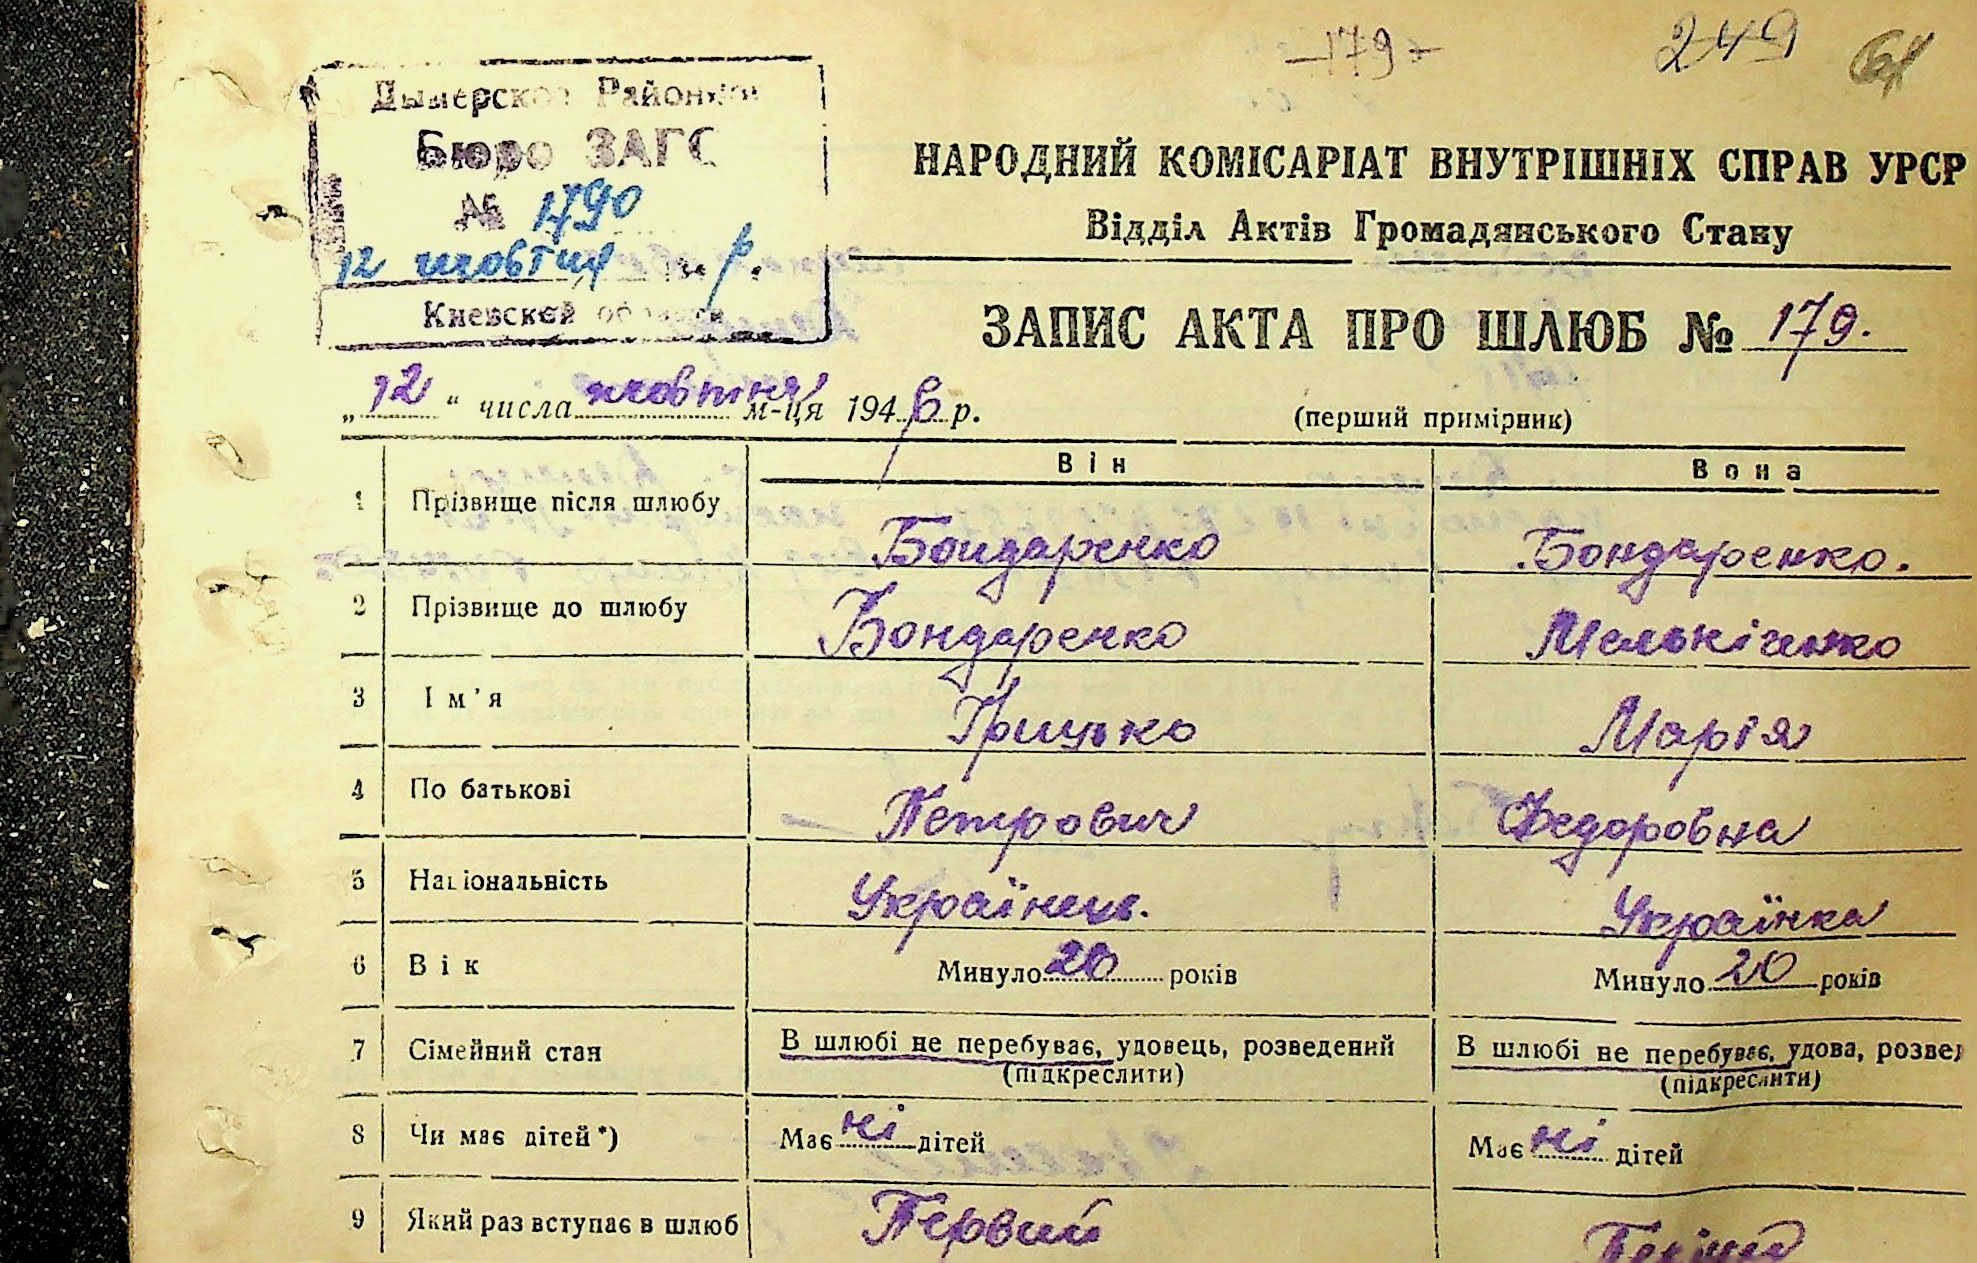 -179-
249
Дымерское Районное
Бюро ЗАГС
№ 1790
12 жовтня 194 6 р.
Киевской области
НАРОДНИЙ КОМІСАРІАТ ВНУТРІШНІХ СПРАВ УРСР
Відділ Актів Громадянського Стану
ЗАПИС АКТА ПРО ШЛЮБ № 179.
„12“ числа жовтня м-ця 1946 р.
(перший примірник)
Він Вона
1 Прізвище після шлюбу Бондаренко Бондаренко.
2 Прізвище до шлюбу Бондаренко Мельніченко
3 Ім'я Грицько Марія
4 По батькові Петрович Федоровна
5 Національність Українець. Українка
6 Вік Минуло 20 років Минуло 20 років
7 Сімейний стан В шлюбі не перебуває, удовець, розведений В шлюбі не перебуває, удова, розве
(підкреслити) (підкреслити)
8 Чи має дітей*) Має ні дітей Має ні дітей
9 Який раз вступає в шлюб Первий